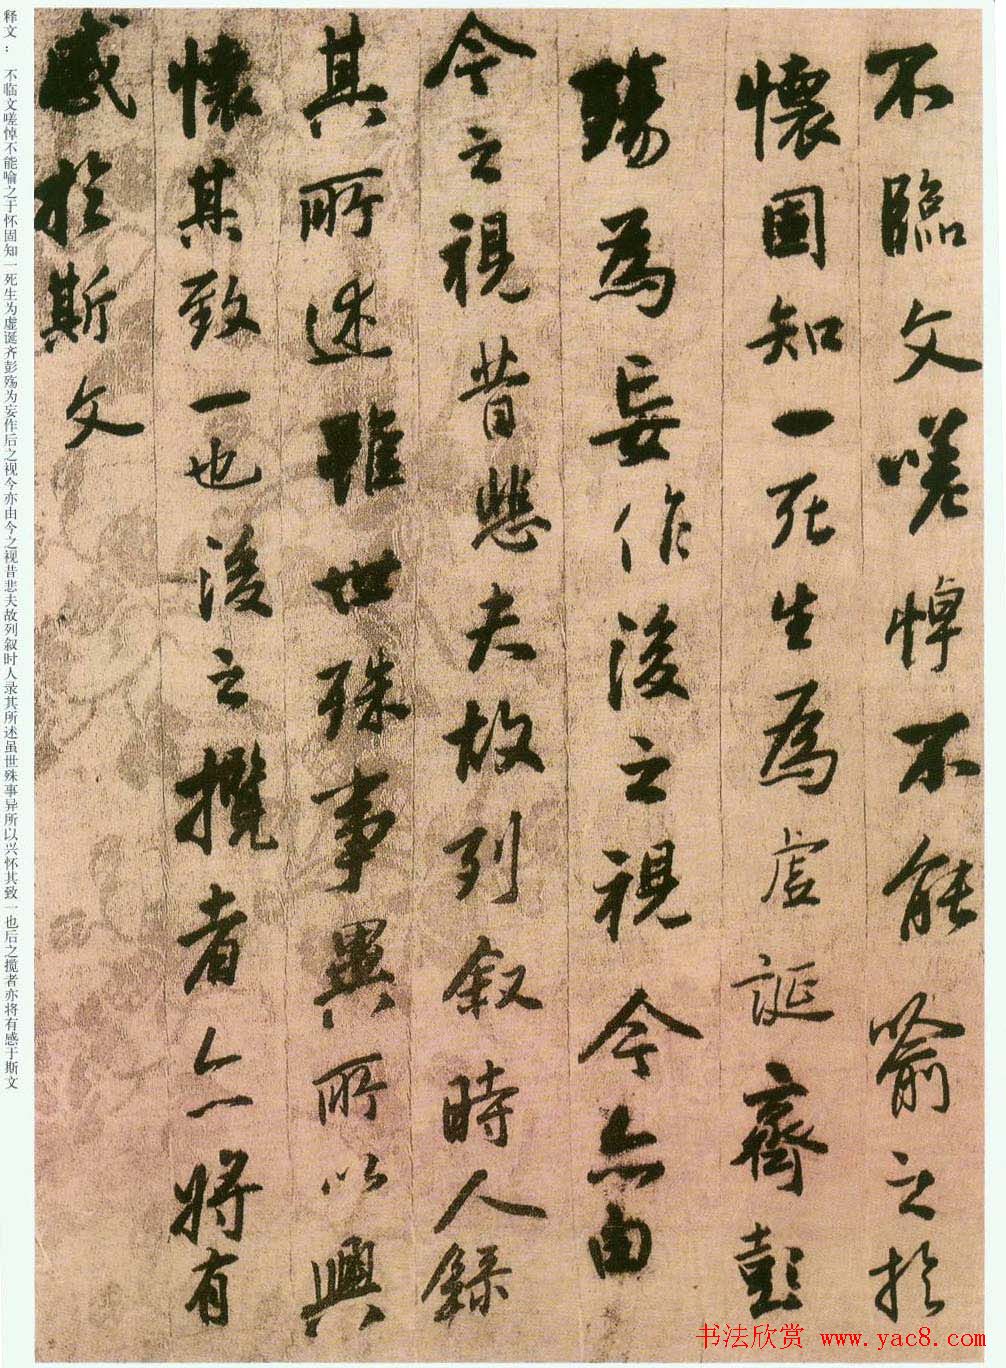 不臨文嗟悼不能喻之於
懷固知一死生為虛誕齊彭
殤為妄作後之視今亦由
今之視昔悲夫故列叙時人錄
其所述雖世殊事異所以興
懷其致一也後之攬者亦將有
感於斯文
释文： 不临文嗟悼不能喻之于怀固知一死生为虚诞齐彭殇为妄作后之视今亦由今之视昔悲夫故列叙时人录其所述虽世殊事异所以兴怀其致一也后之揽者亦将有感于斯文
书法欣赏 www.yac8.com